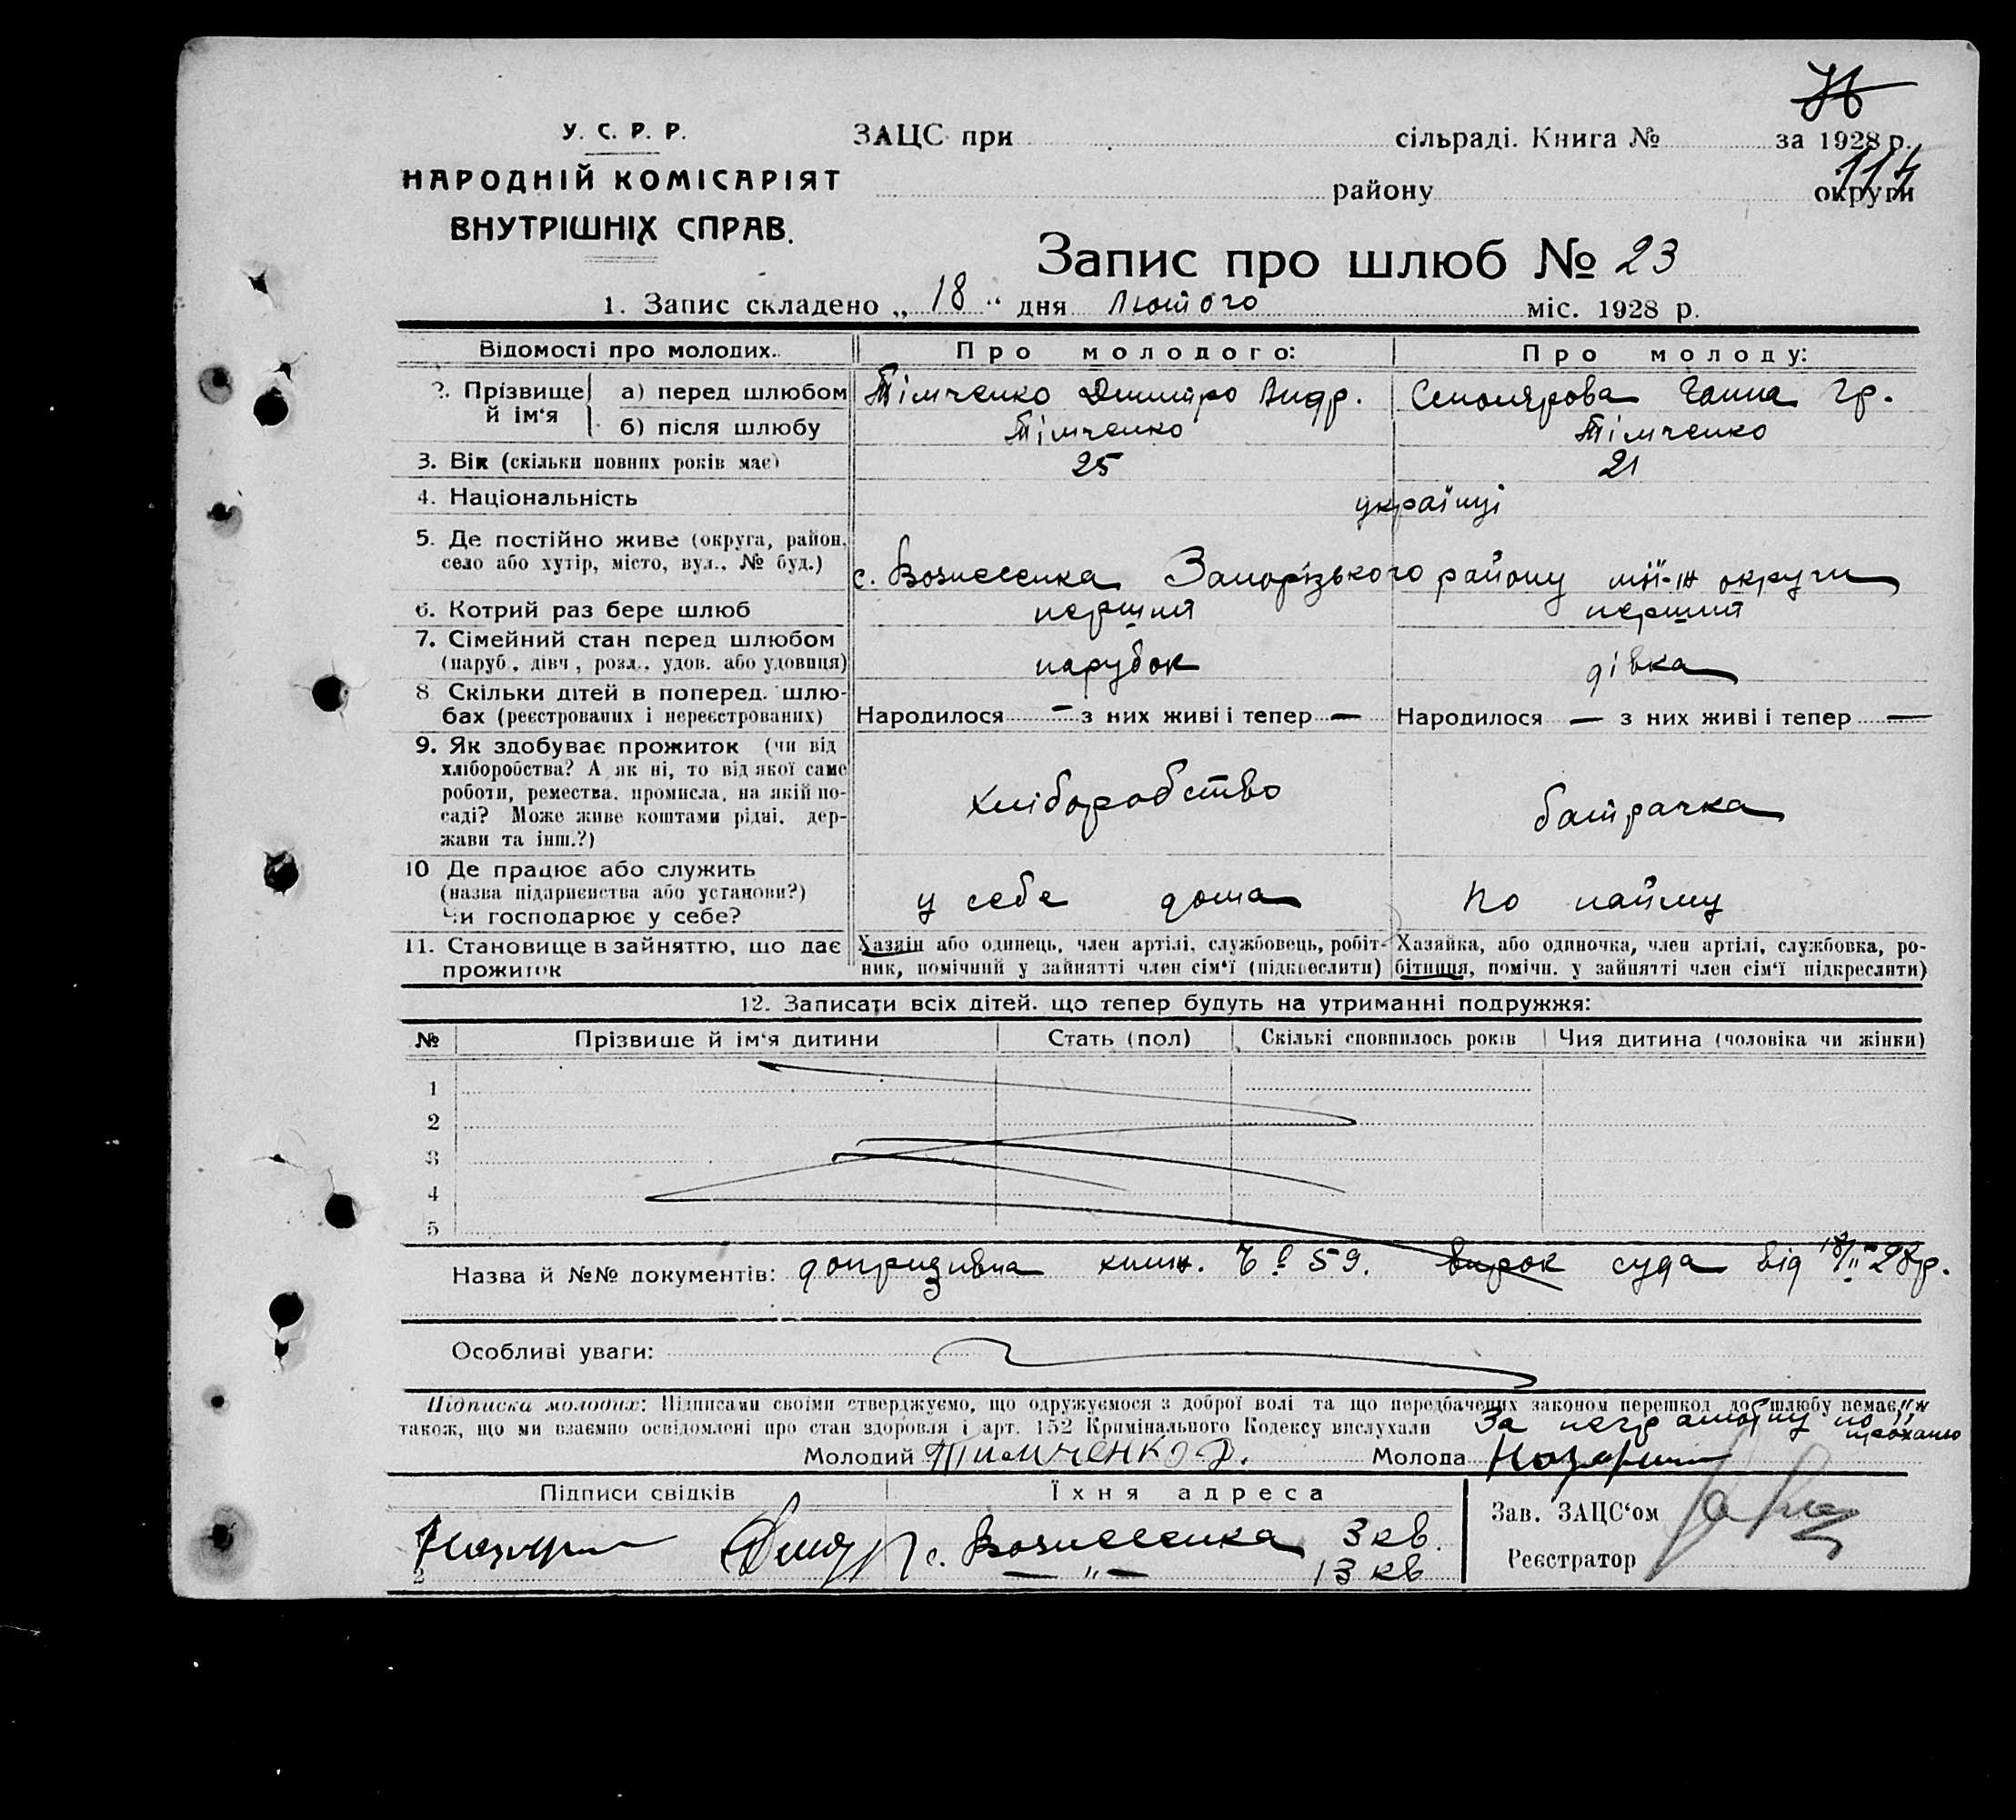 У. С. Р. Р.
НАРОДНІЙ КОМІСАРІЯТ
ВНУТРІШНІХ СПРАВ.
ЗАЦС при сільраді. Книга № за 1928 р.
114
району округи
Запис про шлюб № 23
1. Запис складено „ 18 “ дня лютого міс. 1928 р.
Відомості про молодих. Про молодого: Про молоду:
2. Прізвище й ім‘я а) перед шлюбом Тімченко Дмитро Андр. Ганна Гр.
б) після шлюбу Тімченко Тімченко
3. Вік (скільки повних років має) 25 21
4. Національність українці
5. Де постійно живе (округа, район,
село або хутір, місто, вул., № буд.) с. Вознесенка Запорізького району округи
6. Котрий раз бере шлюб перший перший
7. Сімейний стан перед шлюбом
(паруб., дівч., розл., удов. або удовиця) парубок дівка
8 Скільки дітей в поперед. шлю-
бах (реєстрованих і нереєстрованих) Народилося — з них живі і тепер — Народилося — з них живі і тепер —
9. Як здобуває прожиток (чи від
хліборобства? А як ні, то від якої саме
роботи, ремества, промисла, на якій по-
саді? Може живе коштами рідні, дер-
жави та інш.?) хліборобство батрачка
10 Де працює або служить
(назва підприємства або установи?)
Чи господарює у себе? у себе дома по найму
11. Становище в зайняттю, що дає
прожиток
Хазяїн або одинець, член артілі, службовець, робіт-
ник, помічний у зайнятті член сім‘ї (підкреслити)
Хазяйка, або одиночка, член артілі, службовка, ро-
бітниця, помічн. у зайнятті член сім‘ї підкреслити)
12. Записати всіх дітей. що тепер будуть на утриманні подружжя:
№ Прізвище й ім‘я дитини Стать (пол) Скількі сповнилось років Чия дитина (чоловіка чи жінки)
1
2
3
4
5
Назва й №№ документів: допризивна книж. 59. вирок суда від 28р.
Особливі уваги:
Підписка молодих: Підписами своїми стверджуємо, що одружуємося з доброї волі та що передбачених законом перешкод до шлюбу немає,
також, що ми взаємно освідомлені про стан здоровля і арт. 152 Кримінального Кодексу вислухали
За по проханю
Молодий Тимченко Д. Молода
Підписи свідків Їхня адреса
с. Вознесенка 3 кв.
2 — „ — 13 кв
Зав. ЗАЦС‘ом
Реєстратор